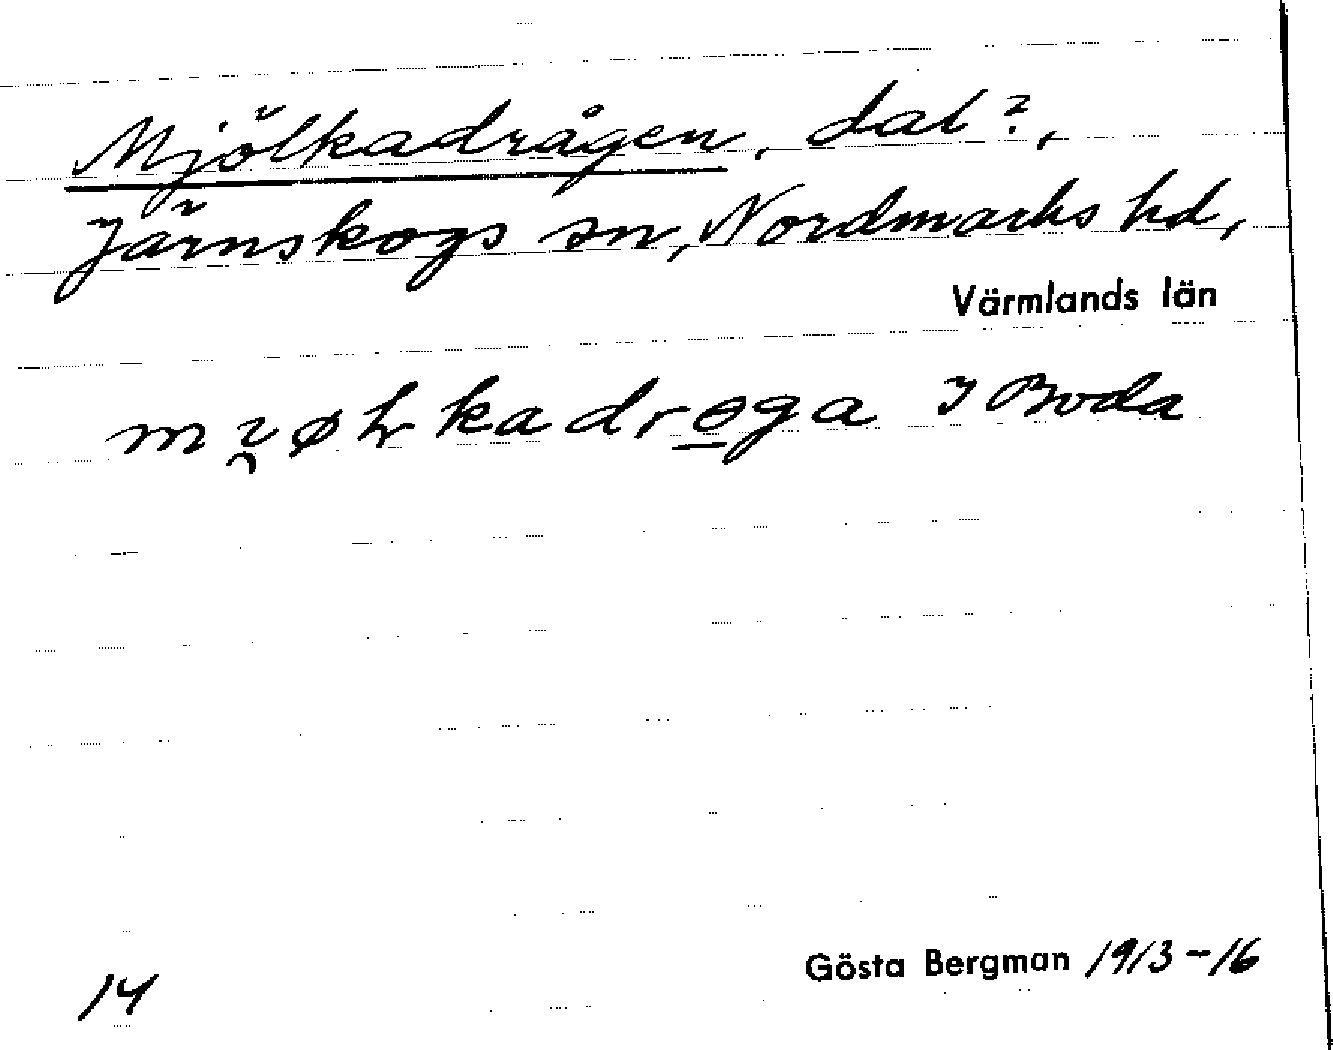 Mjölkadrågen, dal?,
Järnskogs sn, Nordmarks hd,
Värmlands län
I Boda
Gösta Bergman 1913-16
14